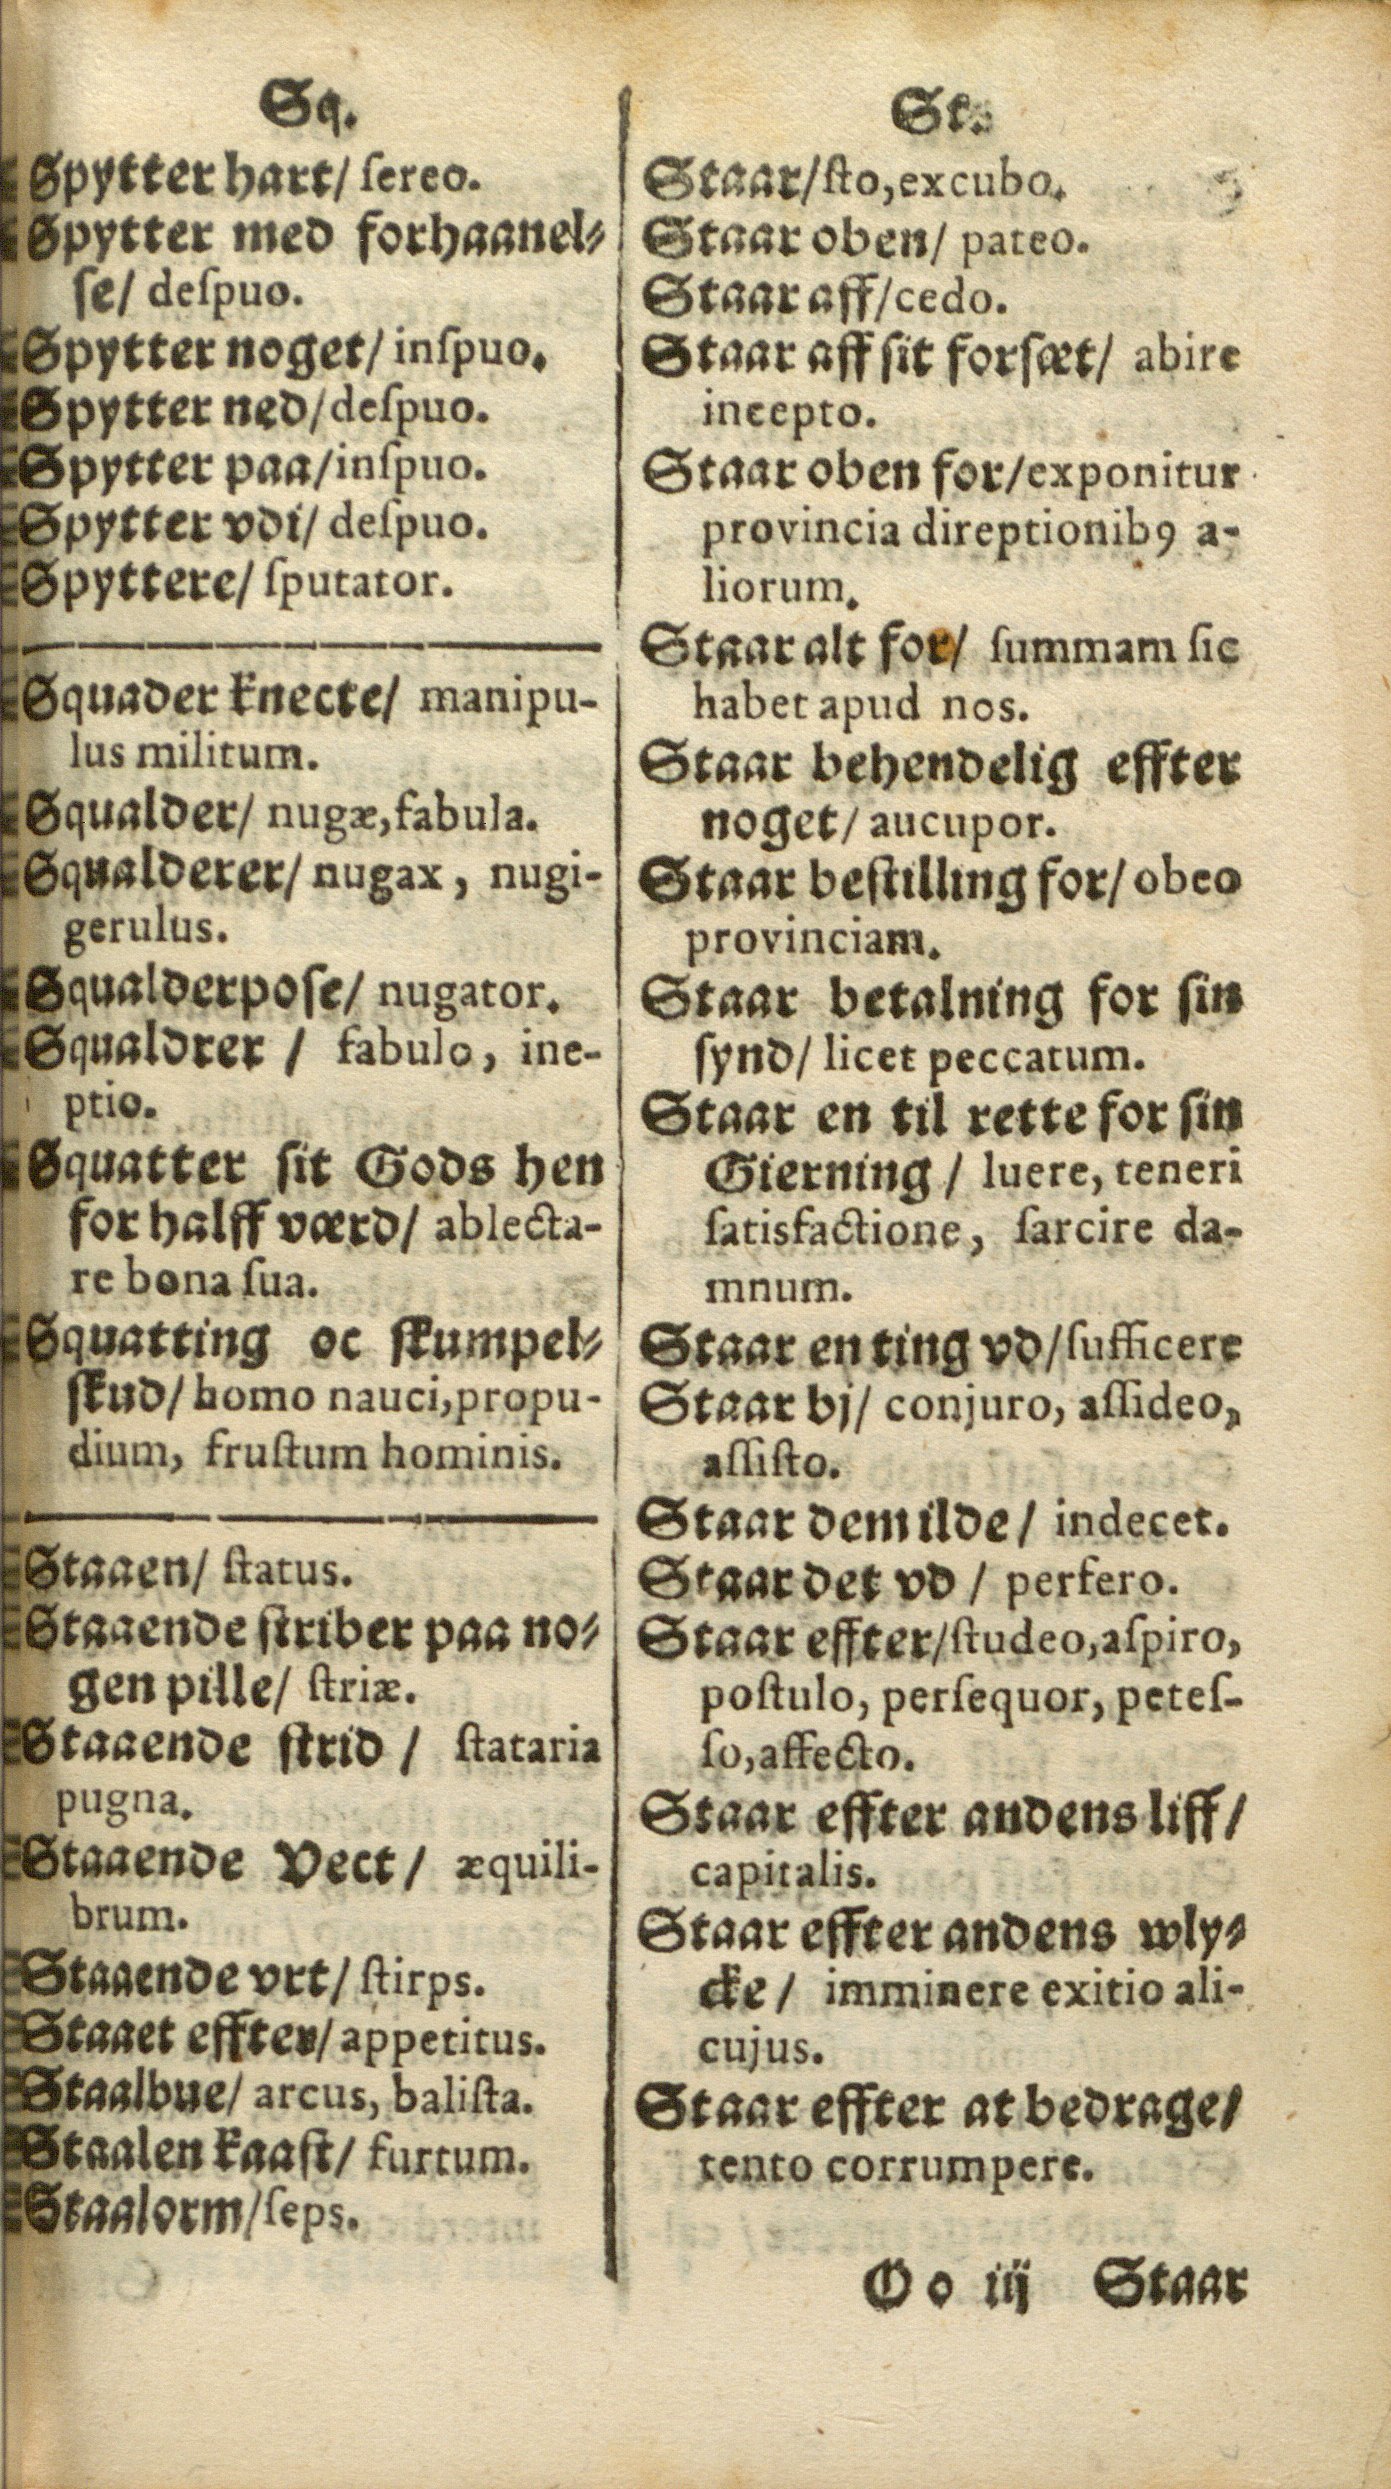 Sq.
Spytter hart/ ſereo.
Spytter med forhaanel⸗
ſe/ deſpuo.
Spytter noget/ inſpuo.
Spytter ned/ deſpuo.
Spytter paa/ inſpuo.
Spytter vdi/ deſpuo.
Spyttere/ ſputator.
Squader knecte/ manipu-
lus militum.
Squalder/ nugæ, fabula.
Squalderer/ nugax, nugi-
gerulus.
Squalderpoſe/ nugator.
Squaldrer / fabulo, ine-
ptio.
Squatter ſit Gods hen
for halff værd/ ablecta-
re bona ſua.
Squatting oc ſkumpel⸗
ſkud/ homo nauci, propu-
dium, fruſtum hominis.
Staaen/ ſtatus.
Staaende ſtriber paa no⸗
gen pille/ ſtriæ.
Staaende ſtrid / ſtataria
pugna.
Staaende Vect / æquili-
brum.
Staaende vrt/ ſtirps.
Staaet effter/ appetitus.
Staalbue/ arcus, baliſta.
Staalen kaaſt/ furtum.
Staalorm/ ſeps.
St.
Staar/ ſto, excubo.
Staar oben/ pateo.
Staar aff/ cedo.
Staar aff ſit forſæt/ abire
incepto.
Staar oben for/ exponitur
provincia direptionibꝰ a-
liorum.
Staar alt for/ ſummam ſic
habet apud nos.
Staar behendelig effter
noget/ aucupor.
Staar beſtilling for/ obeo
provinciam.
Staar betalning for ſin
ſynd/ licet peccatum.
Staar en til rette for ſin
Gierning / luere, teneri
ſatisfactione, ſarcire da-
mnum.
Staar en ting vd/ ſufficere
Staar bj/ conjuro, aſſideo,
aſſiſto.
Staar dem ilde / indecet.
Staar det vd / perfero.
Staar effter/ ſtudeo, aſpiro,
poſtulo, perſequor, peteſ-
ſo, affecto.
Staar effter andens liff /
capitalis.
Staar effter andens wly⸗
cke / imminere exitio ali-
cujus.
Staar effter at bedrage/
tento corrumpere.
O o iij Staar